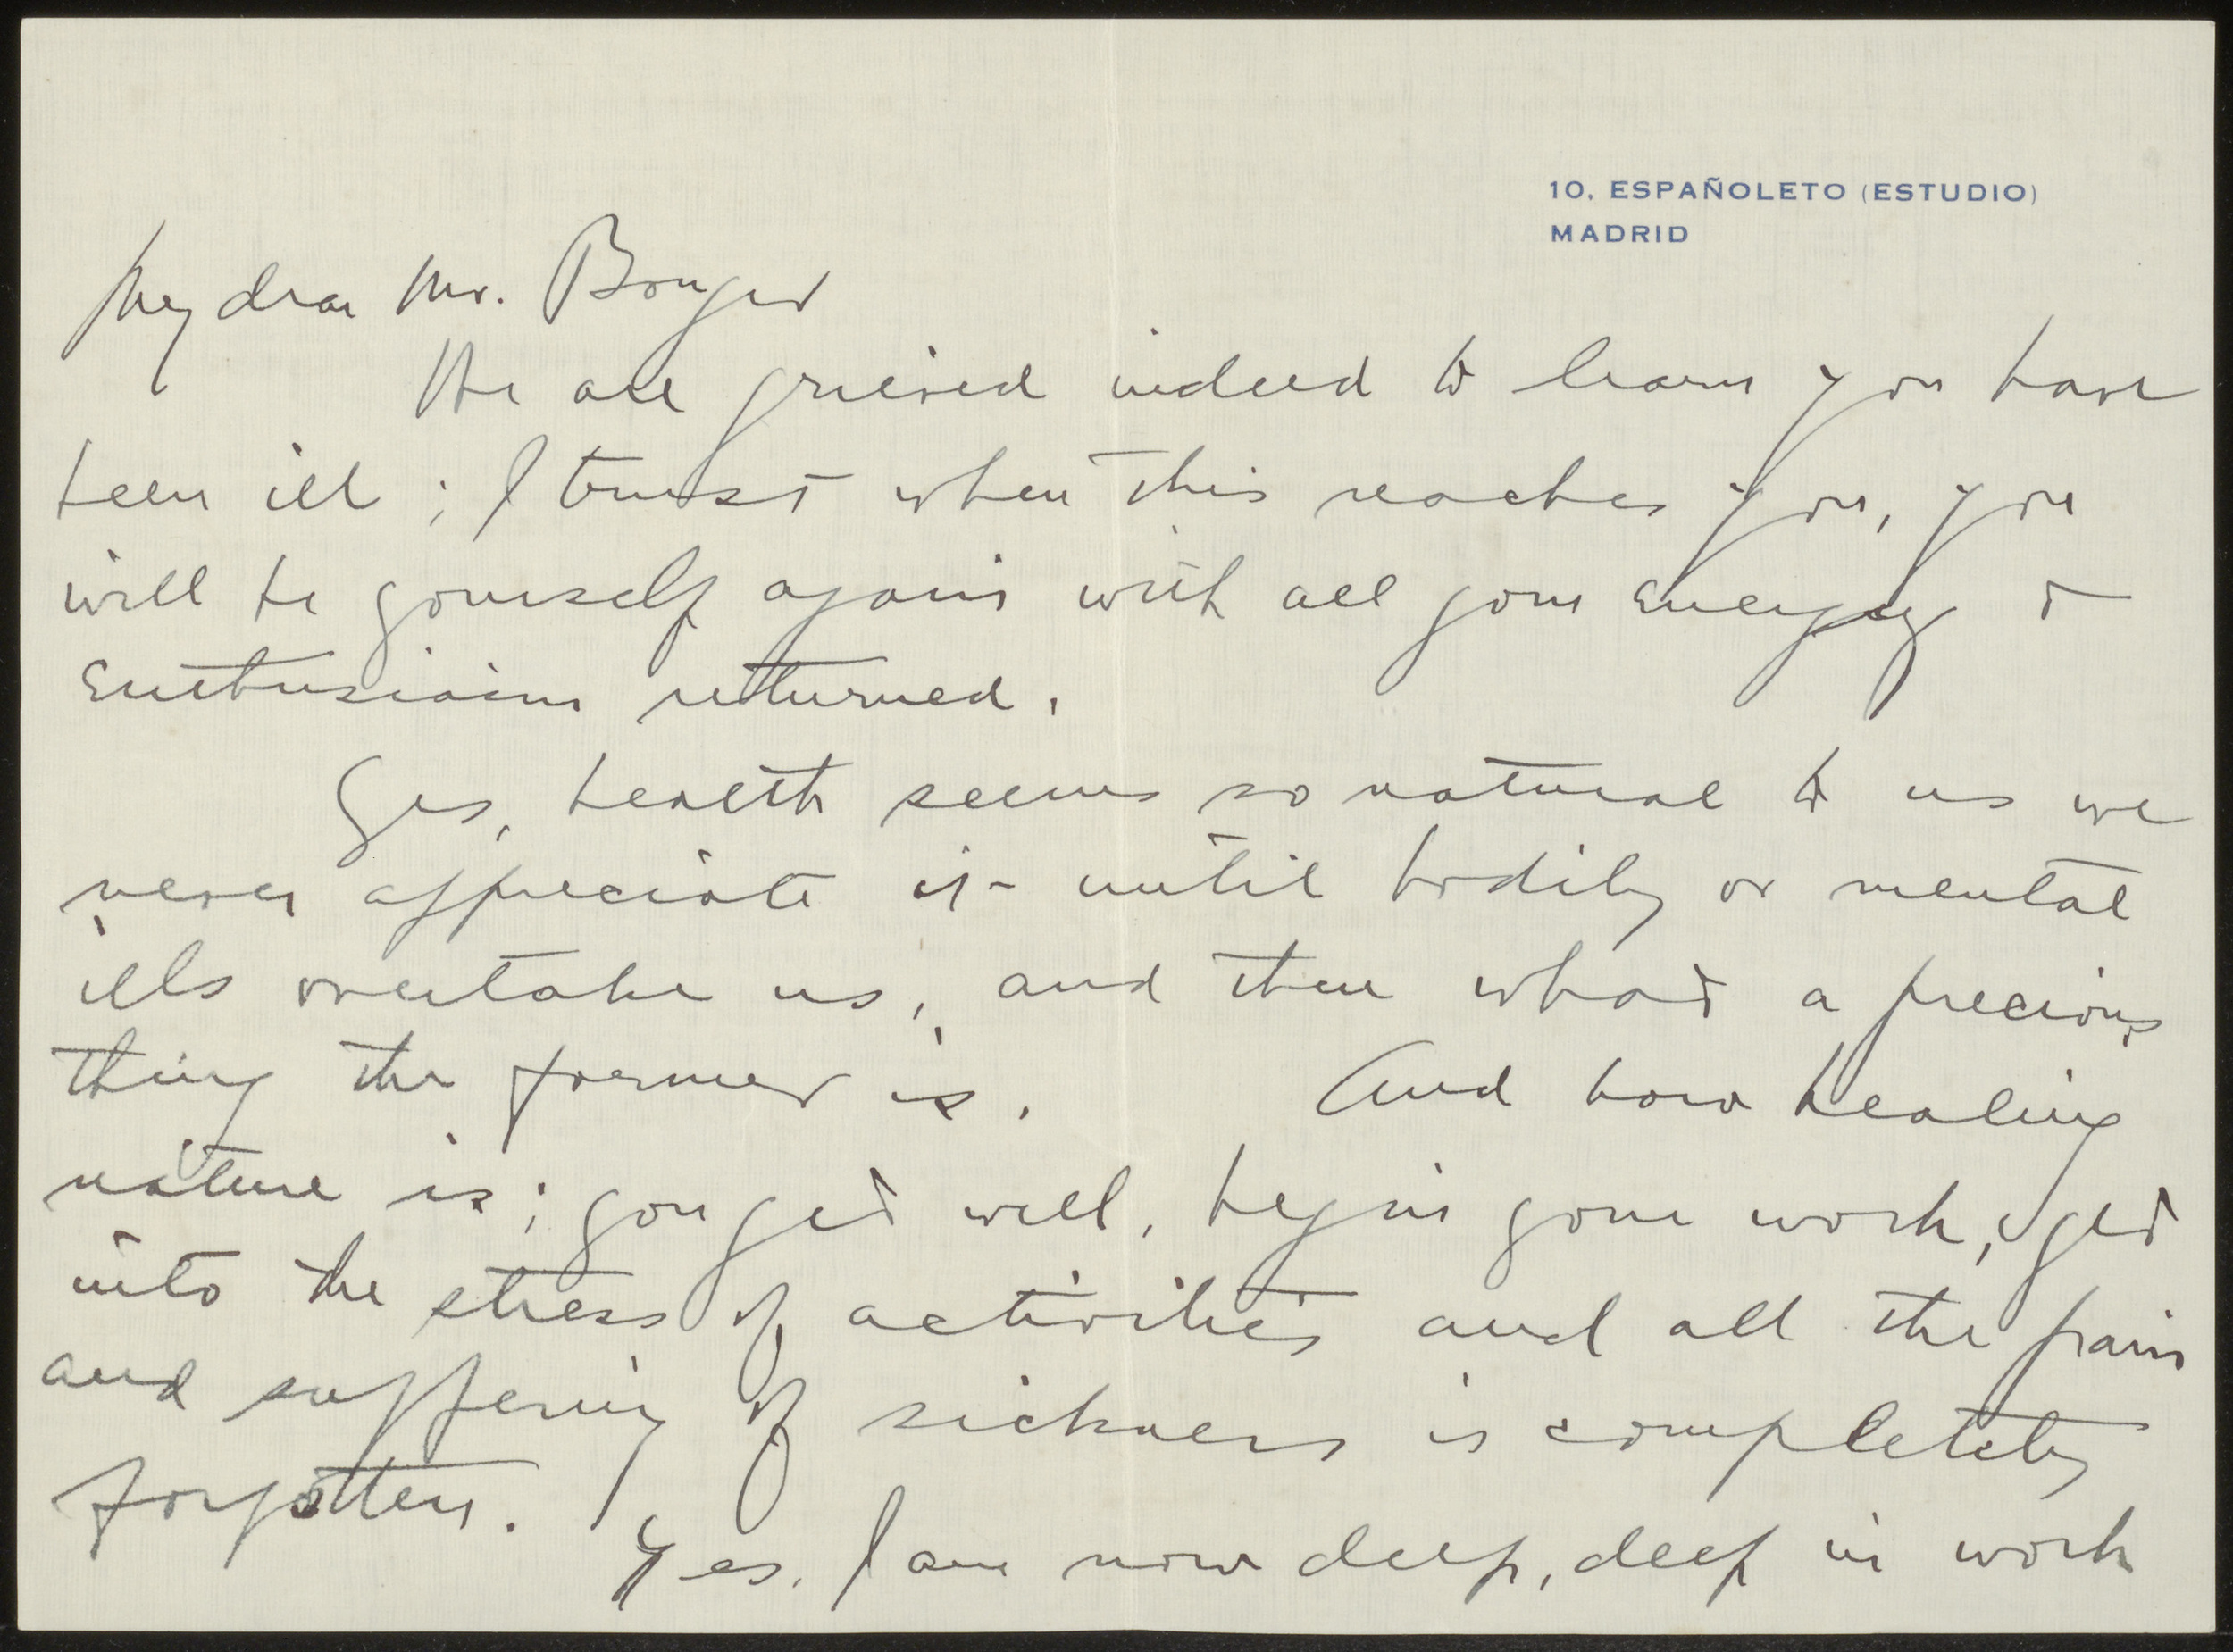 10, ESPAÑOLETO (ESTUDIO)
MADRID
My dear Mr. Bonger
We are grieved indeed to learn you have
been ill; I trust when this reaches you, you
will be yourself again with all your energy &
enthusiasm returned.
Yes, health seems so natural to us we
never appreciate it - until bodily or mental
ills overtake us, and then what a precious
thing the former is. And how healing
nature is; you get well, begin your work, get
into the stress of activities and all the pain
and suffering of sickness is completely
forgotten.
Yes, I am now deep, deep in work